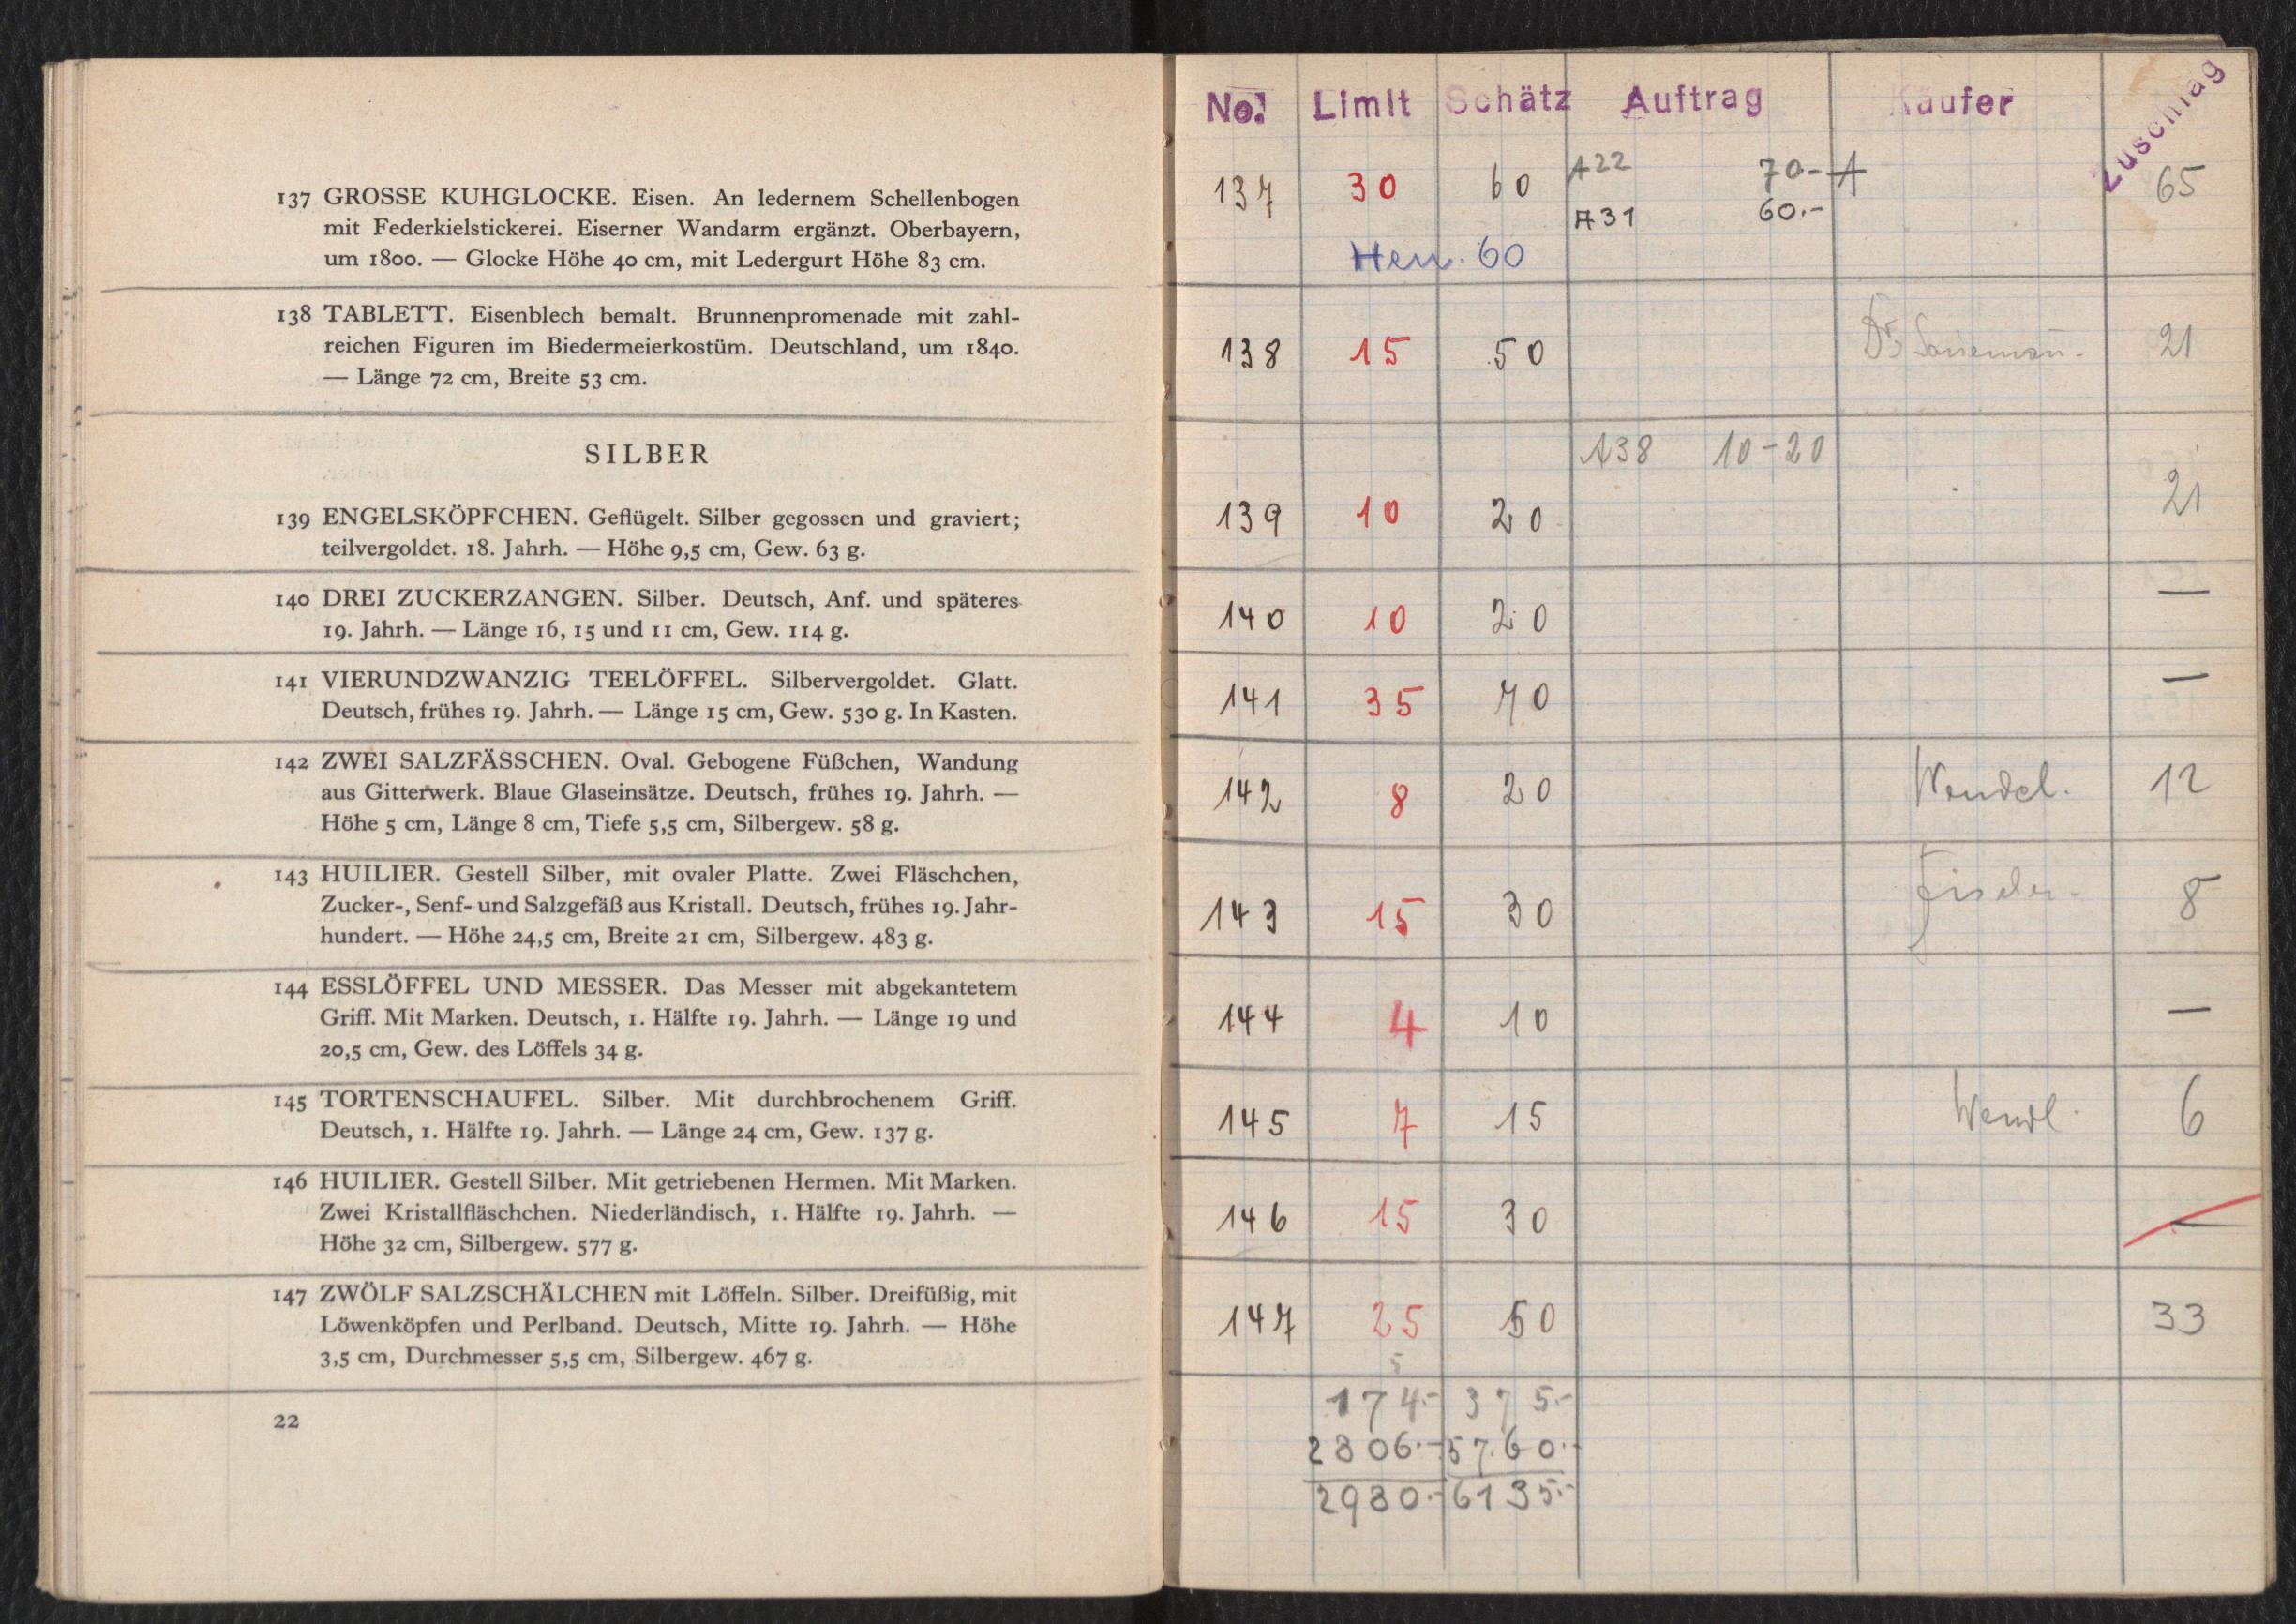 137 GROSSE KUHGLOCKE. Eisen. An ledernem Schellenbogen
mit Federkielstickerei. Eiserner Wandarm ergänzt. Oberbayern,
um 1800. — Glocke Höhe 40 cm, mit Ledergurt Höhe 83 cm.
138 TABLETT. Eisenblech bemalt. Brunnenpromenade mit zahl-
reichen Figuren im Biedermeierkostüm. Deutschland, um 1840.
— Länge 72 cm, Breite 53 cm.
SILBER
139 ENGELSKÖPFCHEN. Geflügelt. Silber gegossen und graviert;
teilvergoldet. 18. Jahrh. — Höhe 9,5 cm, Gew. 63 g.
140 DREI ZUCKERZANGEN. Silber. Deutsch, Anf. und späteres
19. Jahrh. — Länge 16, 15 und 11 cm, Gew. 114 g.
141 VIERUNDZWANZIG TEELÖFFEL. Silbervergoldet. Glatt.
Deutsch, frühes 19. Jahrh. — Länge 15 cm, Gew. 530 g. In Kasten.
142 ZWEI SALZFÄSSCHEN. Oval. Gebogene Füßchen, Wandung
aus Gitterwerk. Blaue Glaseinsätze. Deutsch, frühes 19. Jahrh. —
Höhe 5 cm, Länge 8 cm, Tiefe 5,5 cm, Silbergew. 58 g.
143 HUILIER. Gestell Silber, mit ovaler Platte. Zwei Fläschchen,
Zucker-, Senf- und Salzgefäß aus Kristall. Deutsch, frühes 19. Jahr-
hundert. — Höhe 24,5 cm, Breite 21 cm, Silbergew. 483 g.
144 ESSLÖFFEL UND MESSER. Das Messer mit abgekantetem
Griff. Mit Marken. Deutsch, 1. Hälfte 19. Jahrh. — Länge 19 und
20,5 cm, Gew. des Löffels 34 g.
145 TORTENSCHAUFEL. Silber. Mit durchbrochenem Griff.
Deutsch, 1. Hälfte 19. Jahrh. — Länge 24 cm, Gew. 137 g.
146 HUILIER. Gestell Silber. Mit getriebenen Hermen. Mit Marken.
Zwei Kristallfläschchen. Niederländisch, 1. Hälfte 19. Jahrh. —
Höhe 32 cm, Silbergew. 577 g.
147 ZWÖLF SALZSCHÄLCHEN mit Löffeln. Silber. Dreifüßig, mit
Löwenköpfen und Perlband. Deutsch, Mitte 19. Jahrh. — Höhe
3,5 cm, Durchmesser 5,5 cm, Silbergew. 467 g.
22
No. Limit Schätz Auftrag Käufer Zuschlag
A22 70.- A
137 30 60 65
A31 60.-
60
138 15 50 Dr. 21
A38 10-20
139 10 20 21
140 10 20 —
141 35 70 —
142 8 20 Wendel. 12
143 15 30 Fischer. 8
144 4 10 —
145 7 15 Wendl. 6
146 15 30 —
147 25 50 33
174.- 375.-
2806.- 5760.-
2980.- 6135.-